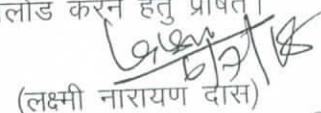 लोड करने हेतु प्रेषित।
(लक्ष्मी नारायण दास)